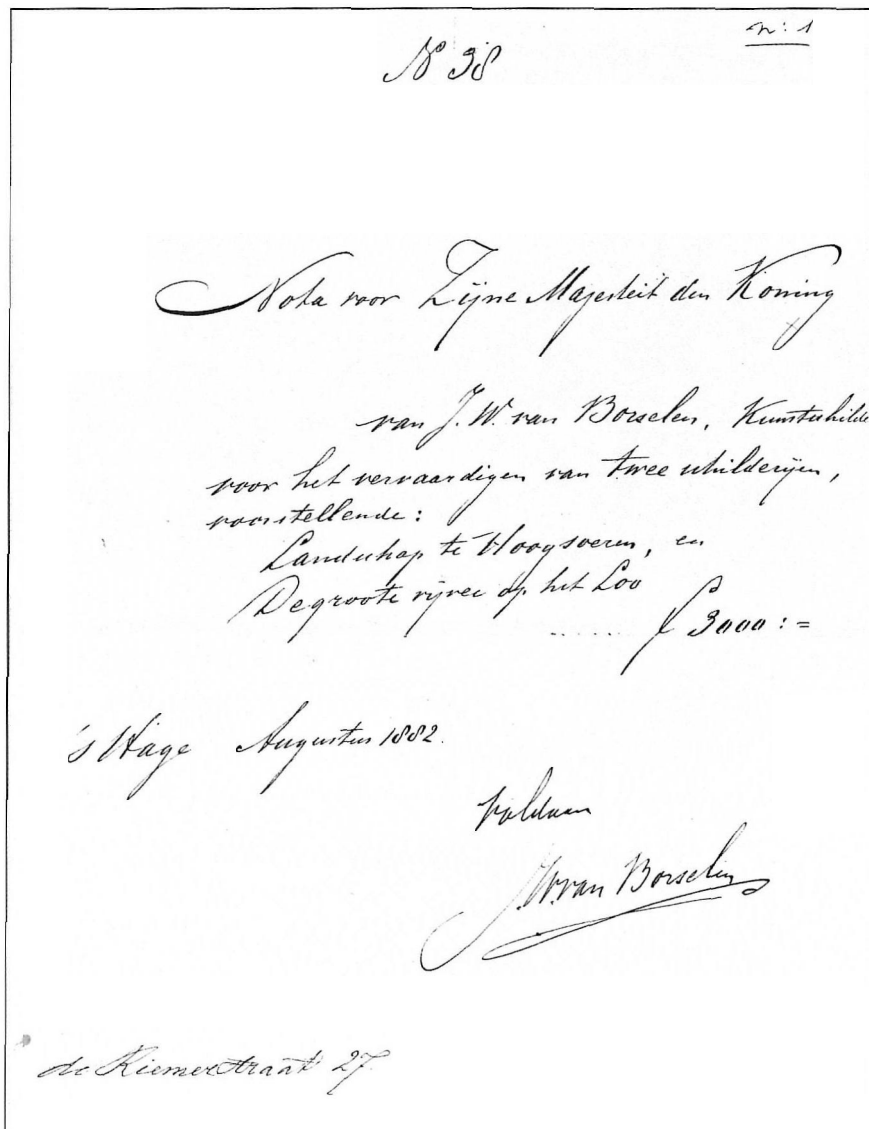 nº 1
Nº 38
Nota voor Zijne Majesteit den Koning
van J. W. van Borselen, Kunstschilde
voor het vervaardigen van twee schilderijen,
voorstellende:
Landschap te Hoogsoeren, en
De groote vijver op het Loo
...... f 3000 : =
's Hage Augustus 1882.
Voldaan
J. W. van Borselen
de Riemerstraat 27.